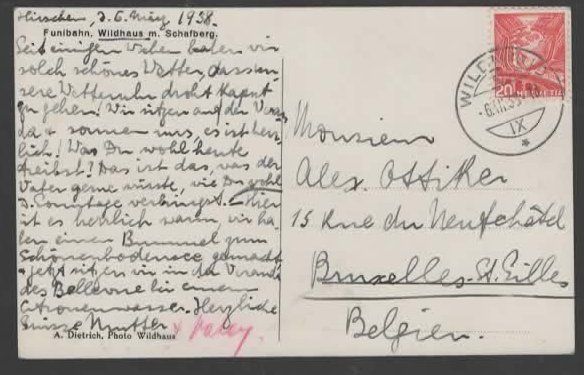 Hirschen, d. 6. März 1938.
Funibahn, Wildhaus m. Schafberg.
Seit einigen Wochen haben wir
solch schönes Wetter, dass un-
sere Wetteruhr droht kaput
zu gehen! Wir sitzen auf der Veran-
da & sonnen uns, es ist herr-
lich! Was Du wohl heute
treibst? Das ist das, was der
Vater gerne wüsste, wie Du wohl
d. Sonntage verbringst. Hier
ist es herrlich warm, wir ha-
ben einen Bummel zum
Schönenbodensee gemacht
& jetzt sitzen wir in der Veranda
des Bellevue bei einem
Citronenwasser. Herzliche
Grüsse Mutter
A. Dietrich, Photo Wildhaus
Monsieur
Alex. Ottiker
15 Rue du Neufchâtel
Bruxelles-St. Gilles
Belgien.
20 HELVETIA
WILDHAUS
IX